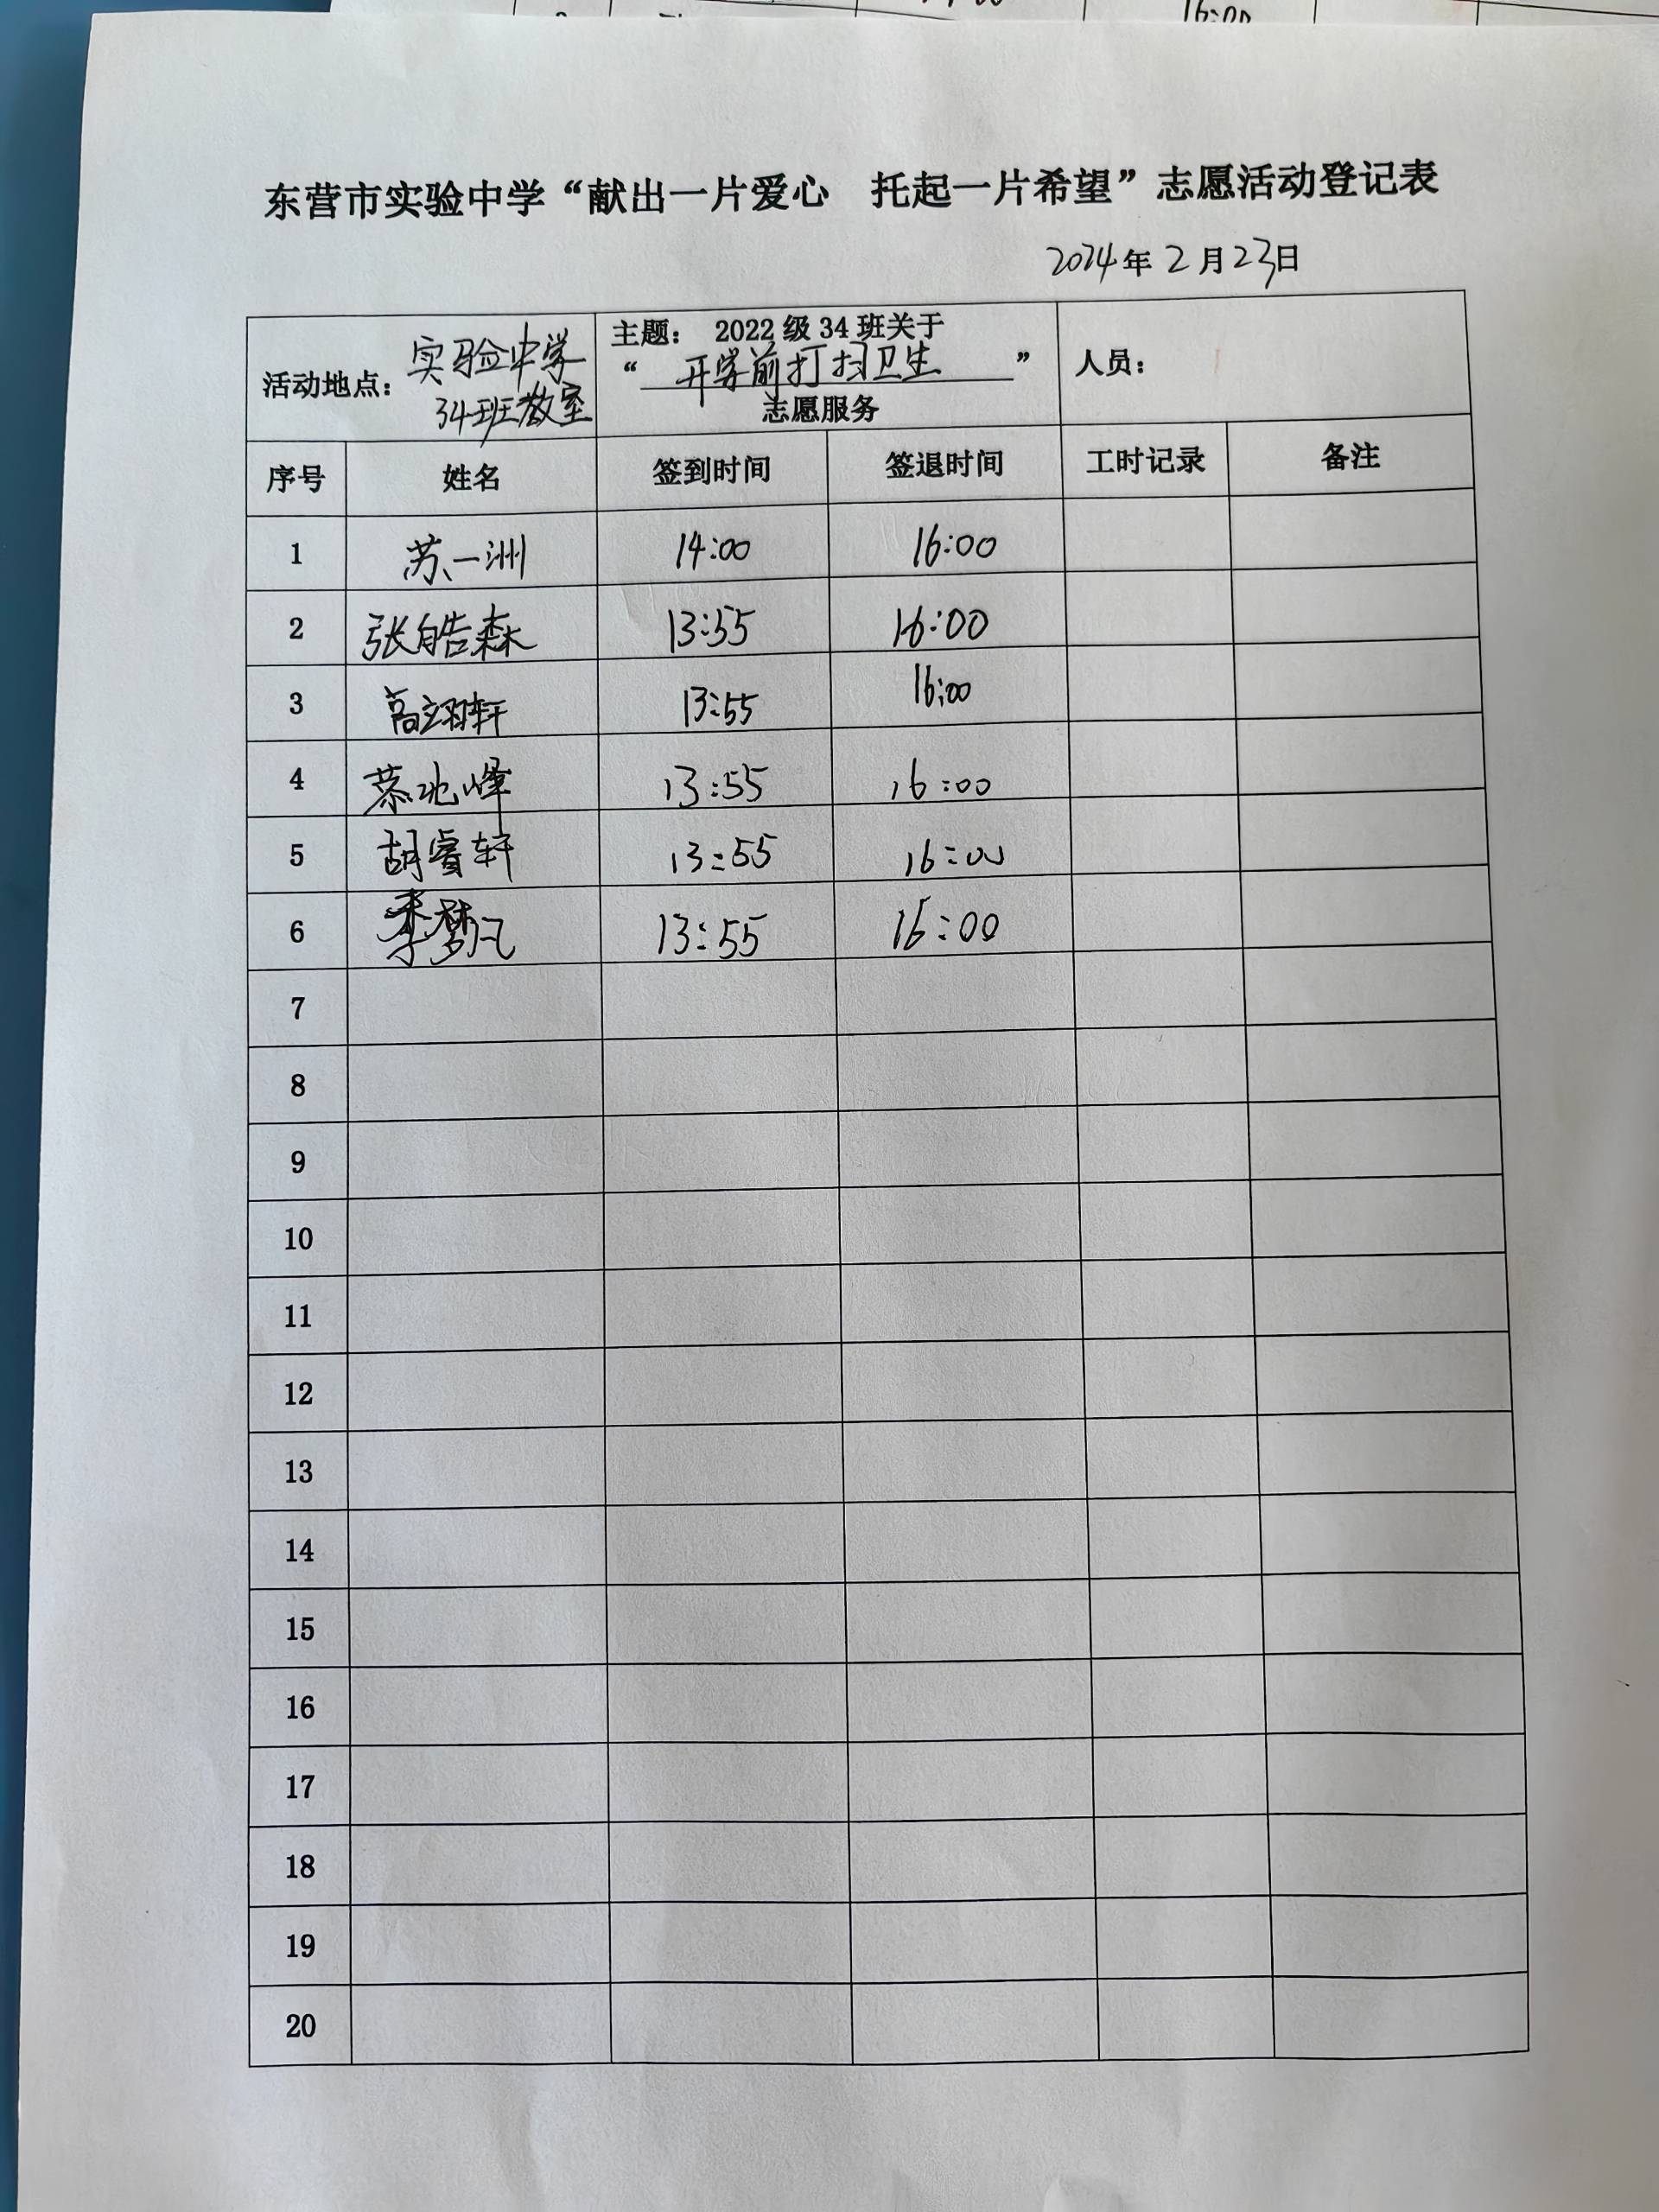 16:00
东营市实验中学“献出一片爱心 托起一片希望”志愿活动登记表
2024年2月23日
活动地点：实验中学 34班教室
主题： 2022级34班关于
“开学前打扫卫生”
志愿服务
人员：
序号 姓名 签到时间 签退时间 工时记录 备注
1 苏一洲 14:00 16:00
2 张皓森 13:55 16:00
3 高翊轩 13:55 16:00
4 13:55 16:00
5 胡睿轩 13:55 16:00
6 季梦凡 13:55 16:00
7
8
9
10
11
12
13
14
15
16
17
18
19
20